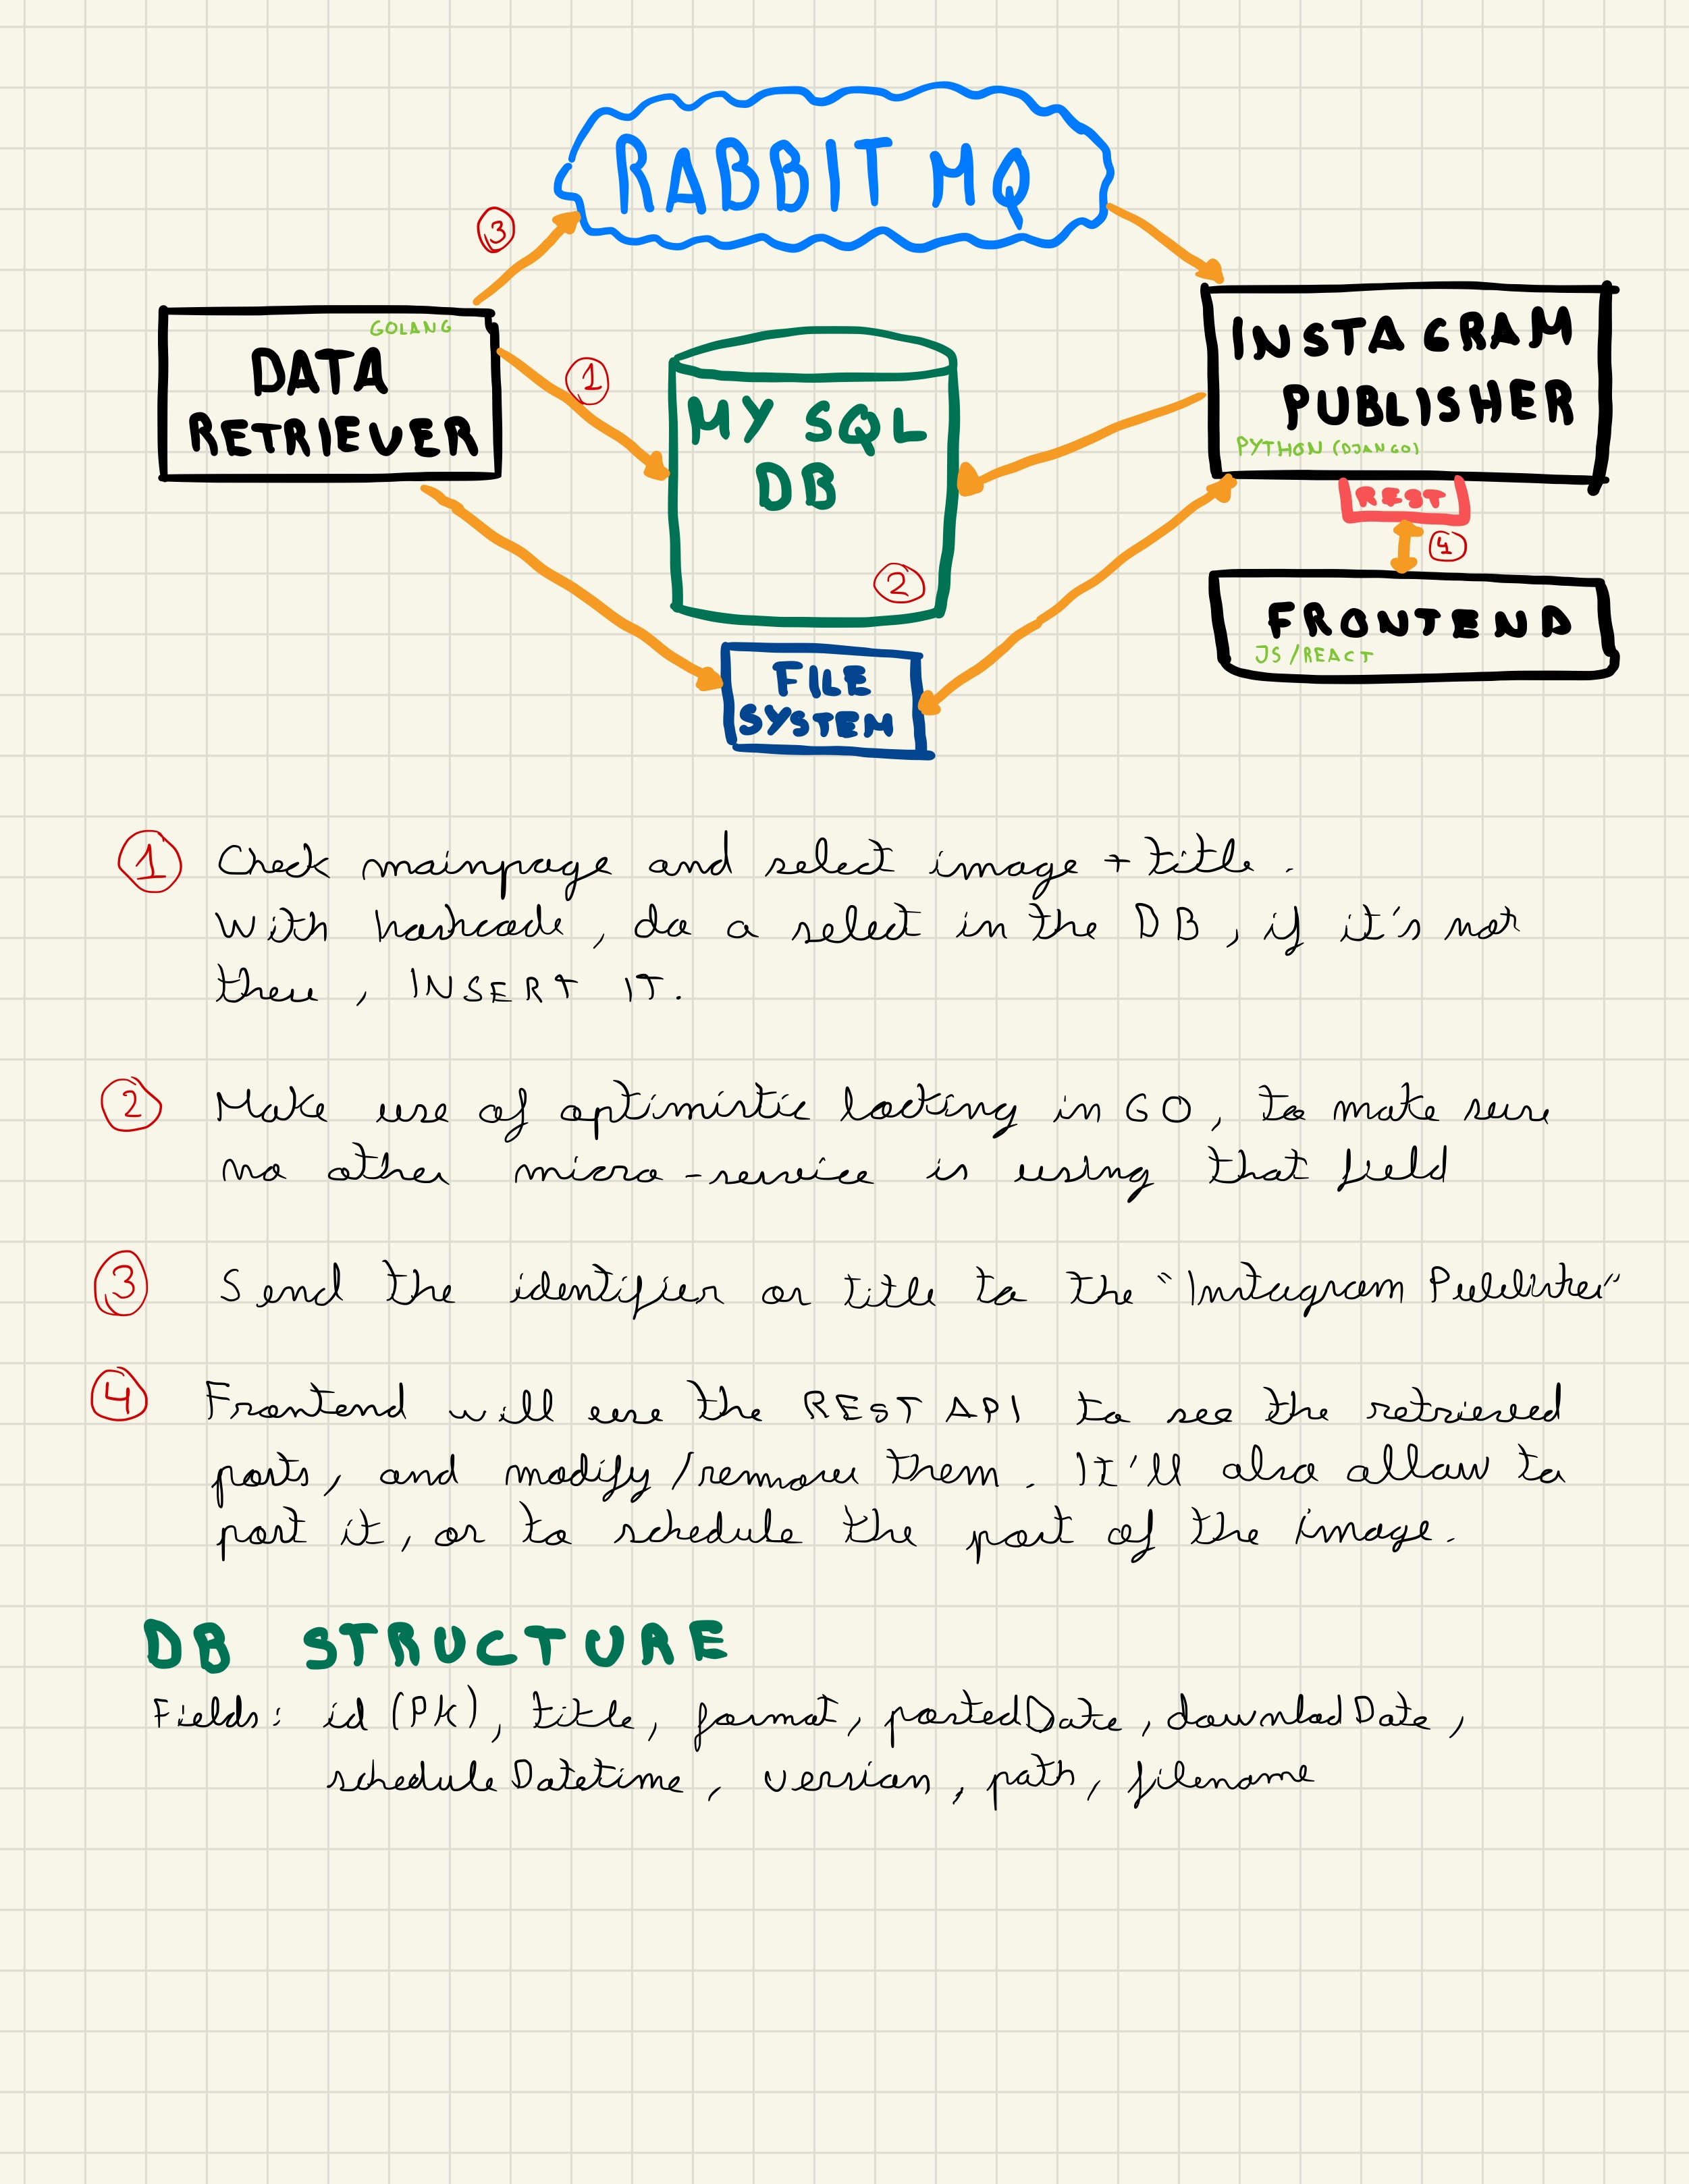 RABBIT MQ
3
GOLANG
DATA
RETRIEVER
1
MY SQL
DB
2
INSTAGRAM
PUBLISHER
PYTHON (DJANGO)
REST
4
FRONTEND
JS/REACT
FILE
SYSTEM
1 Check mainpage and select image + title.
With hashcode, do a select in the DB, if it's not
there, INSERT IT.
2 Make use of optimistic locking in GO, to make sure
no other micro-service is using that field
3 Send the identifier or title to the "Instagram Publisher"
4 Frontend will use the REST API to see the retrieved
posts, and modify/remove them. It'll also allow to
post it, or to schedule the post of the image.
DB STRUCTURE
Fields: id (PK), title, format, postedDate, downlodDate,
scheduleDatetime, version, path, filename